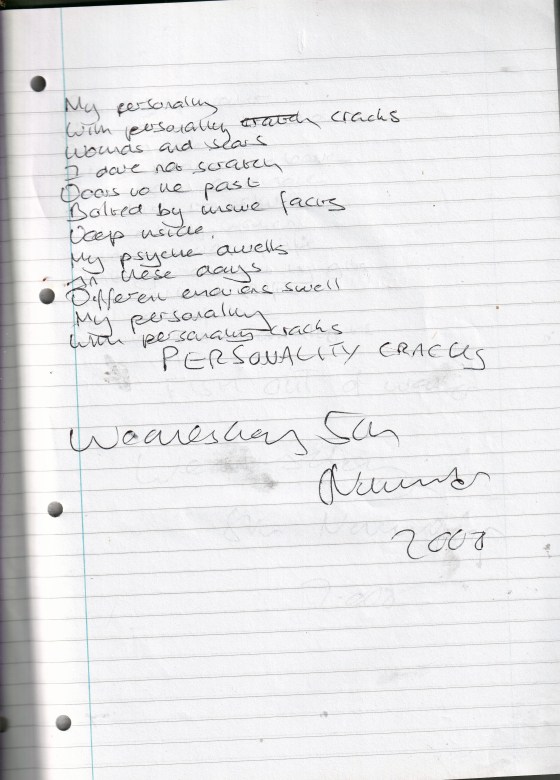 My personality
With personality cracks
Wounds and scars
I dare not scratch
Doors to the past
Bolted by inside facts
Deep inside,
My psyche dwells
In these days
Different emotions swell
My personality
With personality cracks
PERSONALITY CRACKS
Wednesday 5th
November
2008